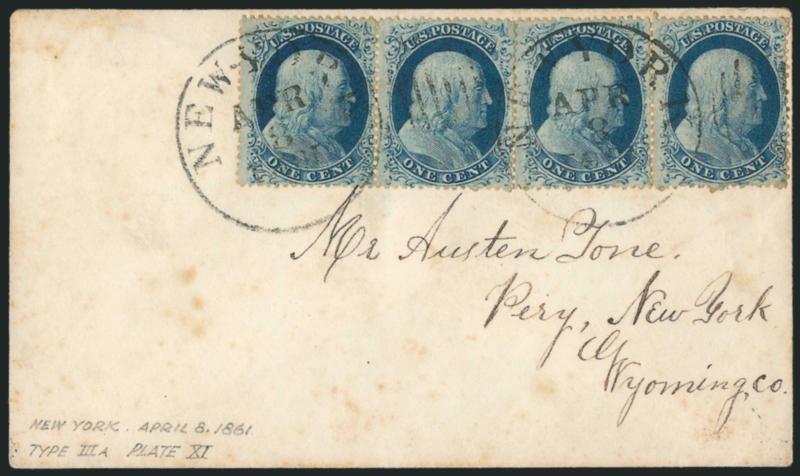 U.S. POSTAGE U.S. POSTAGE U.S. POSTAGE U.S. POSTAGE
ONE CENT ONE CENT ONE CENT ONE CENT
NEW YORK
APR
8
NEW YORK
APR
8
Mr Austen Tone.
Pery, New York
Wyoming, co.
NEW YORK. APRIL 8, 1861
TYPE IIIA PLATE XI